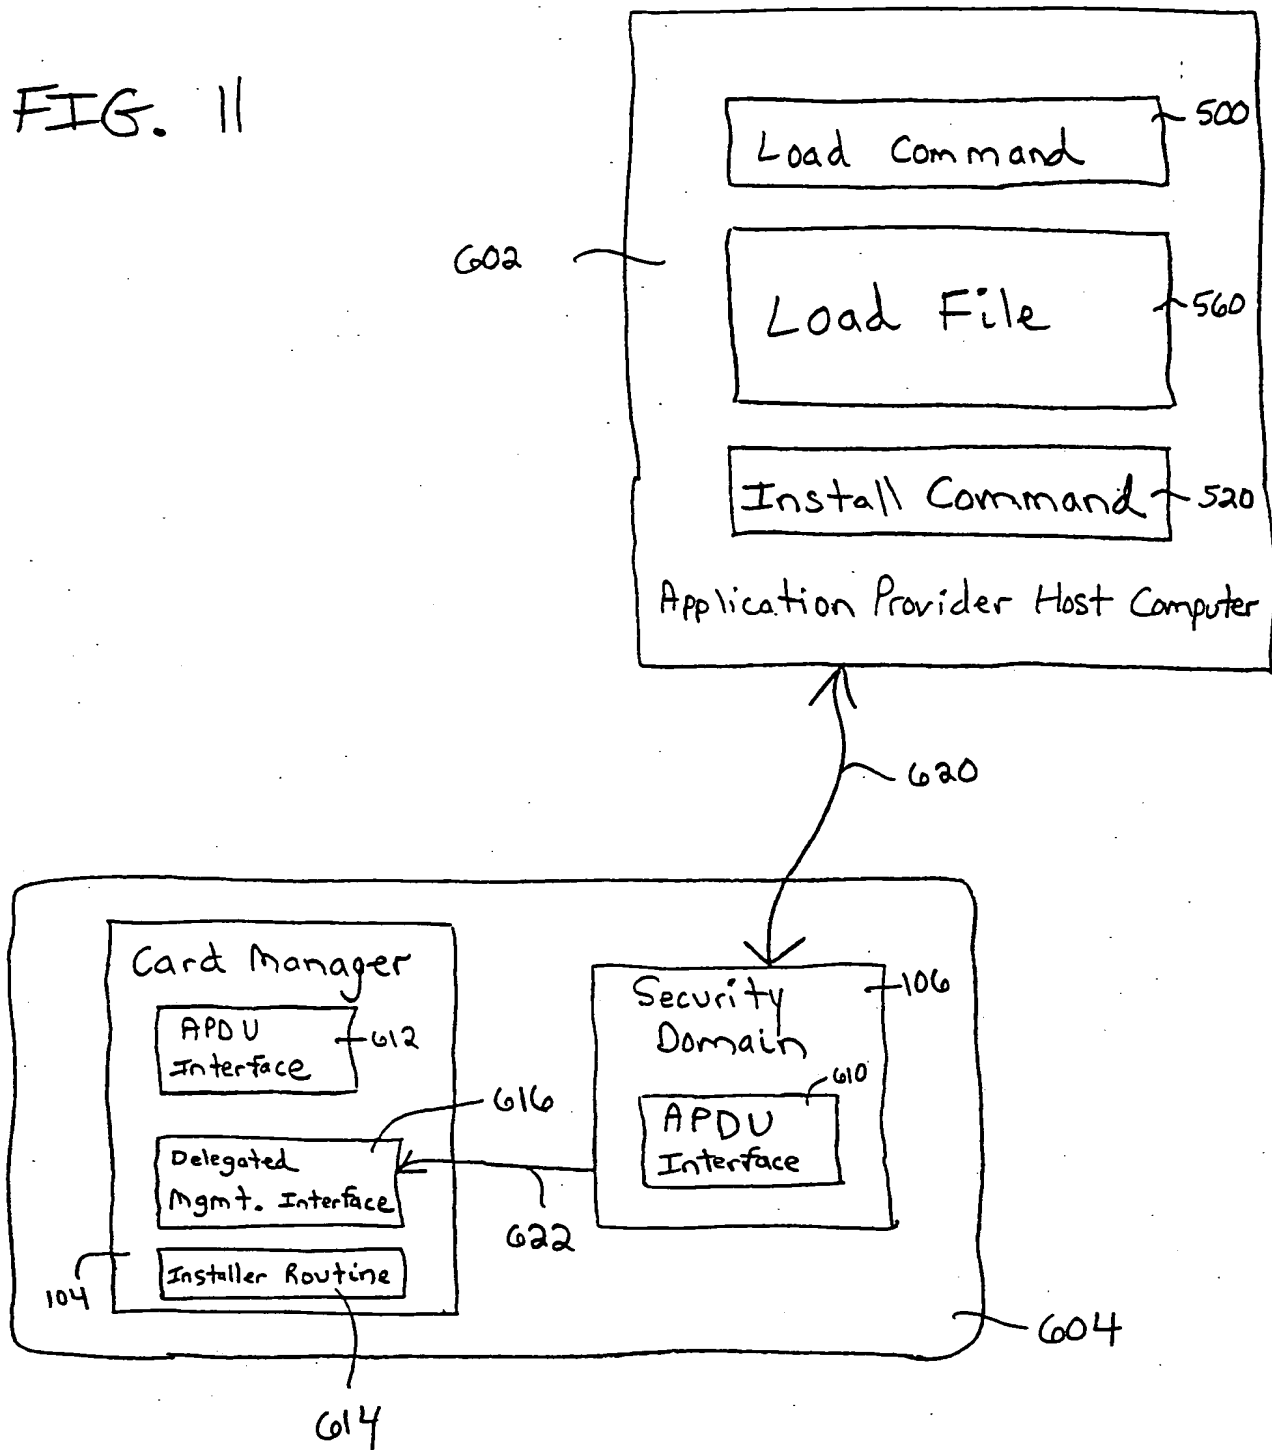 FIG. 11
Load Command
500
602
Load File
560
Install Command
520
Application Provider Host Computer
620
Card Manager
APDU
Interface
612
616
Delegated
Mgmt. Interface
Installer Routine
104
614
622
Security
Domain
106
610
APDU
Interface
604